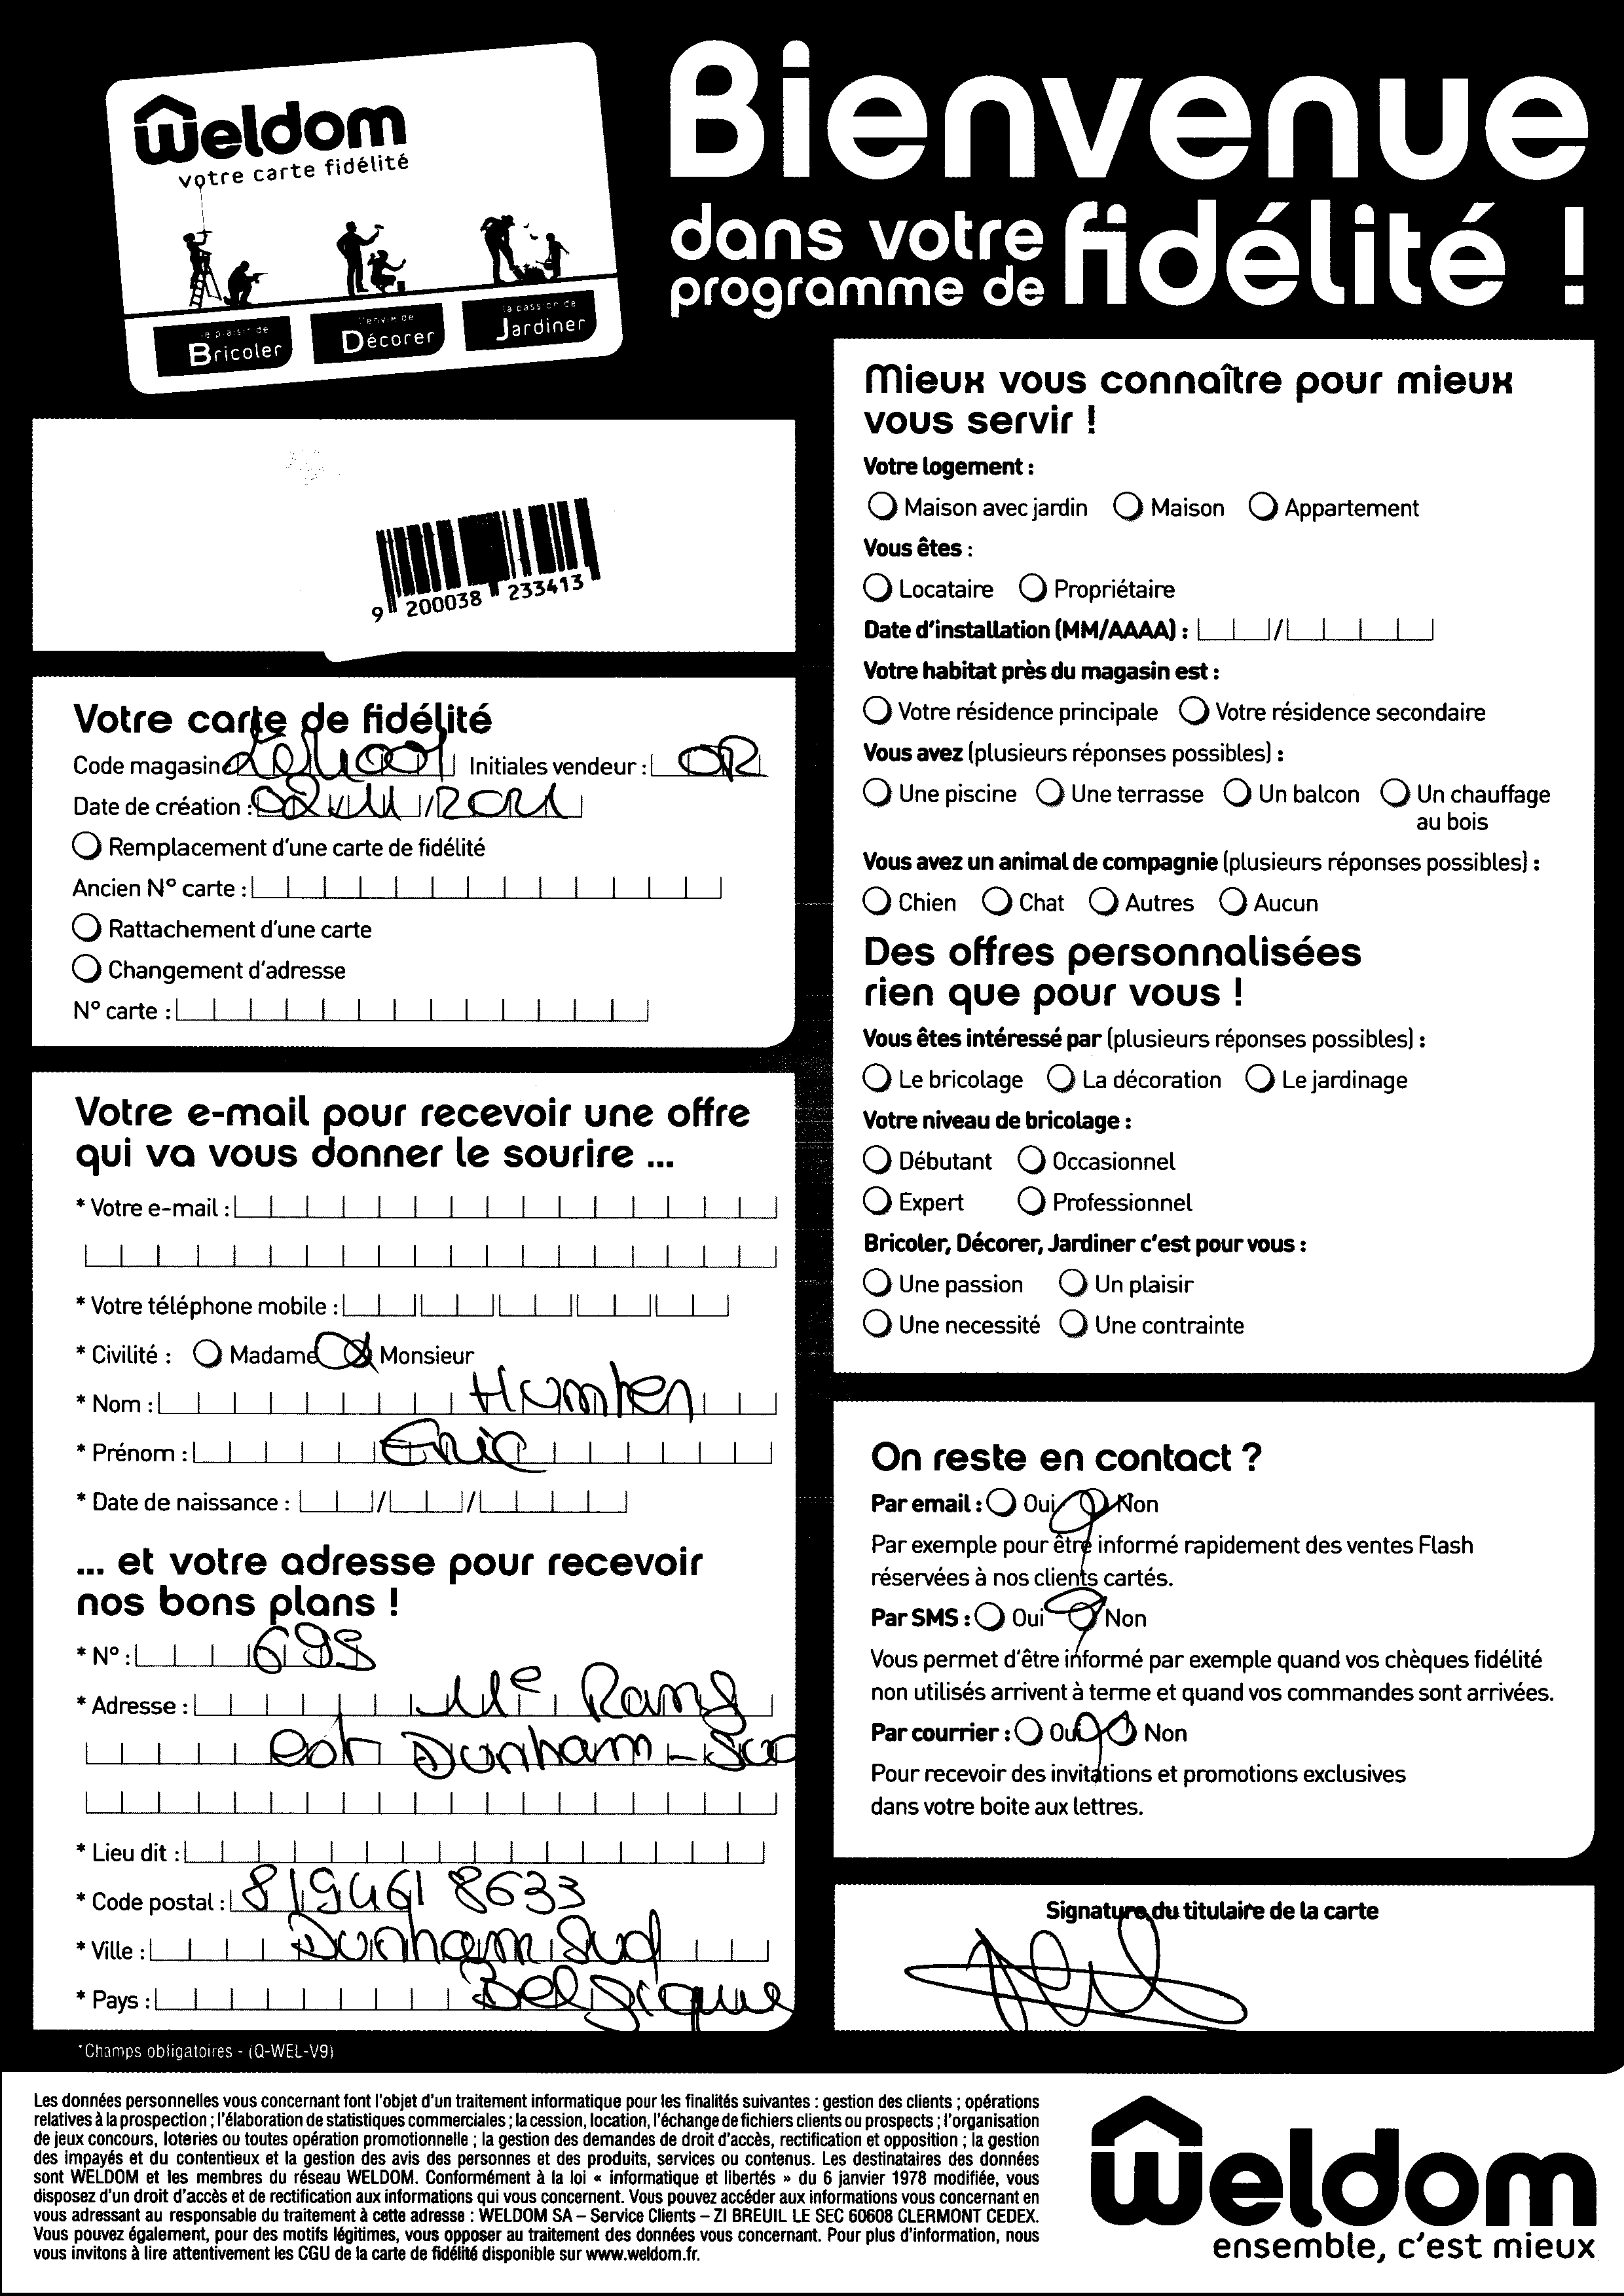 Weldom
votre carte fidélité
le plaisir de
Bricoler
l'envie de
Décorer
la passion de
Jardiner
Bienvenue
dans votre
programme de fidélité !
9 200038 233413
Votre carte de fidélité
Code magasin Initiales vendeur : OR
Date de création :
Remplacement d'une carte de fidélité
Ancien N° carte :
Rattachement d'une carte
Changement d'adresse
N° carte :
Votre e-mail pour recevoir une offre
qui va vous donner le sourire ...
* Votre e-mail :
* Votre téléphone mobile :
* Civilité : Madame Monsieur
* Nom : Humten
* Prénom : Eric
* Date de naissance : / /
... et votre adresse pour recevoir
nos bons plans !
* N° : 698
* Adresse : Rang
est Dunham-Sud
* Lieu dit :
* Code postal : 819461 8633
* Ville : Dunham Sud
* Pays : Belgique
*Champs obligatoires - (Q-WEL-V9)
Mieux vous connaître pour mieux
vous servir !
Votre logement :
Maison avec jardin Maison Appartement
Vous êtes :
Locataire Propriétaire
Date d'installation (MM/AAAA) : /
Votre habitat près du magasin est :
Votre résidence principale Votre résidence secondaire
Vous avez (plusieurs réponses possibles) :
Une piscine Une terrasse Un balcon Un chauffage
au bois
Vous avez un animal de compagnie (plusieurs réponses possibles) :
Chien Chat Autres Aucun
Des offres personnalisées
rien que pour vous !
Vous êtes intéressé par (plusieurs réponses possibles) :
Le bricolage La décoration Le jardinage
Votre niveau de bricolage :
Débutant Occasionnel
Expert Professionnel
Bricoler, Décorer, Jardiner c'est pour vous :
Une passion Un plaisir
Une necessité Une contrainte
On reste en contact ?
Par email : Oui Non
Par exemple pour être informé rapidement des ventes Flash
réservées à nos clients cartés.
Par SMS : Oui Non
Vous permet d'être informé par exemple quand vos chèques fidélité
non utilisés arrivent à terme et quand vos commandes sont arrivées.
Par courrier : Oui Non
Pour recevoir des invitations et promotions exclusives
dans votre boite aux lettres.
Signature du titulaire de la carte
Les données personnelles vous concernant font l'objet d'un traitement informatique pour les finalités suivantes : gestion des clients ; opérations
relatives à la prospection ; l'élaboration de statistiques commerciales ; la cession, location, l'échange de fichiers clients ou prospects ; l'organisation
de jeux concours, loteries ou toutes opération promotionnelle ; la gestion des demandes de droit d'accès, rectification et opposition ; la gestion
des impayés et du contentieux et la gestion des avis des personnes et des produits, services ou contenus. Les destinataires des données
sont WELDOM et les membres du réseau WELDOM. Conformément à la loi « informatique et libertés » du 6 janvier 1978 modifiée, vous
disposez d'un droit d'accès et de rectification aux informations qui vous concernent. Vous pouvez accéder aux informations vous concernant en
vous adressant au responsable du traitement à cette adresse : WELDOM SA – Service Clients – ZI BREUIL LE SEC 60608 CLERMONT CEDEX.
Vous pouvez également, pour des motifs légitimes, vous opposer au traitement des données vous concernant. Pour plus d'information, nous
vous invitons à lire attentivement les CGU de la carte de fidélité disponible sur www.weldom.fr.
Weldom
ensemble, c'est mieux